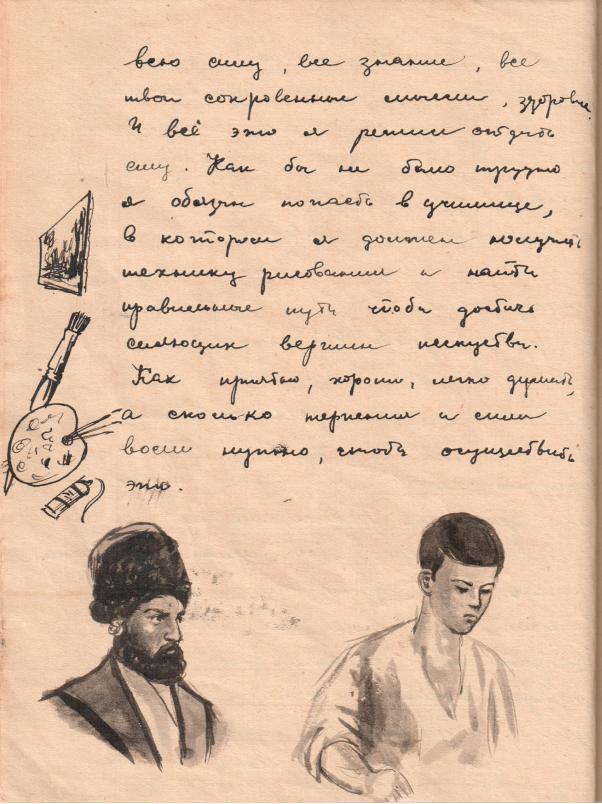 всю силу, все знание, все
твои сокровенные мысли, здоровье.
И всё это я решил отдать
ему. Как бы ни было трудно
я обязан попасть в училище,
в котором я должен получить
технику рисования и найти
правильные пути чтобы достичь
сияющих вершин искусства.
Как приятно, хорошо, легко думать,
а сколько терпения и силы
воли нужно, чтобы осуществить
это.